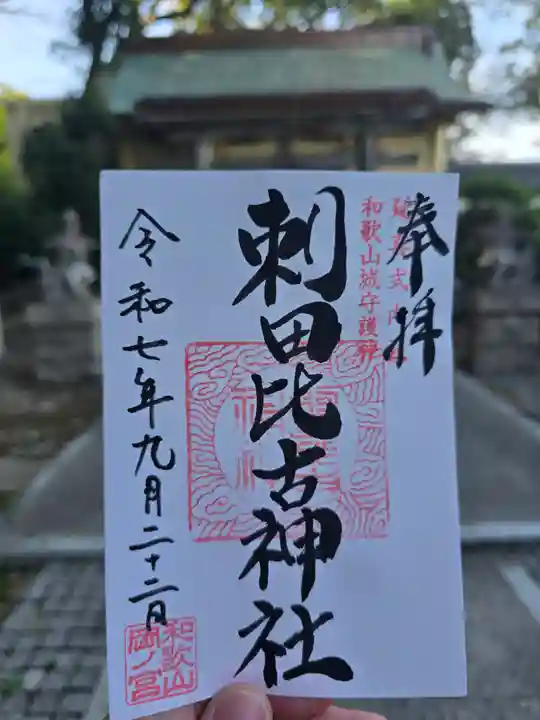 奉拝
延喜式内
和歌山城守護神
刺田比古神社
令和七年九月二十二日
和歌山
岡ノ宮